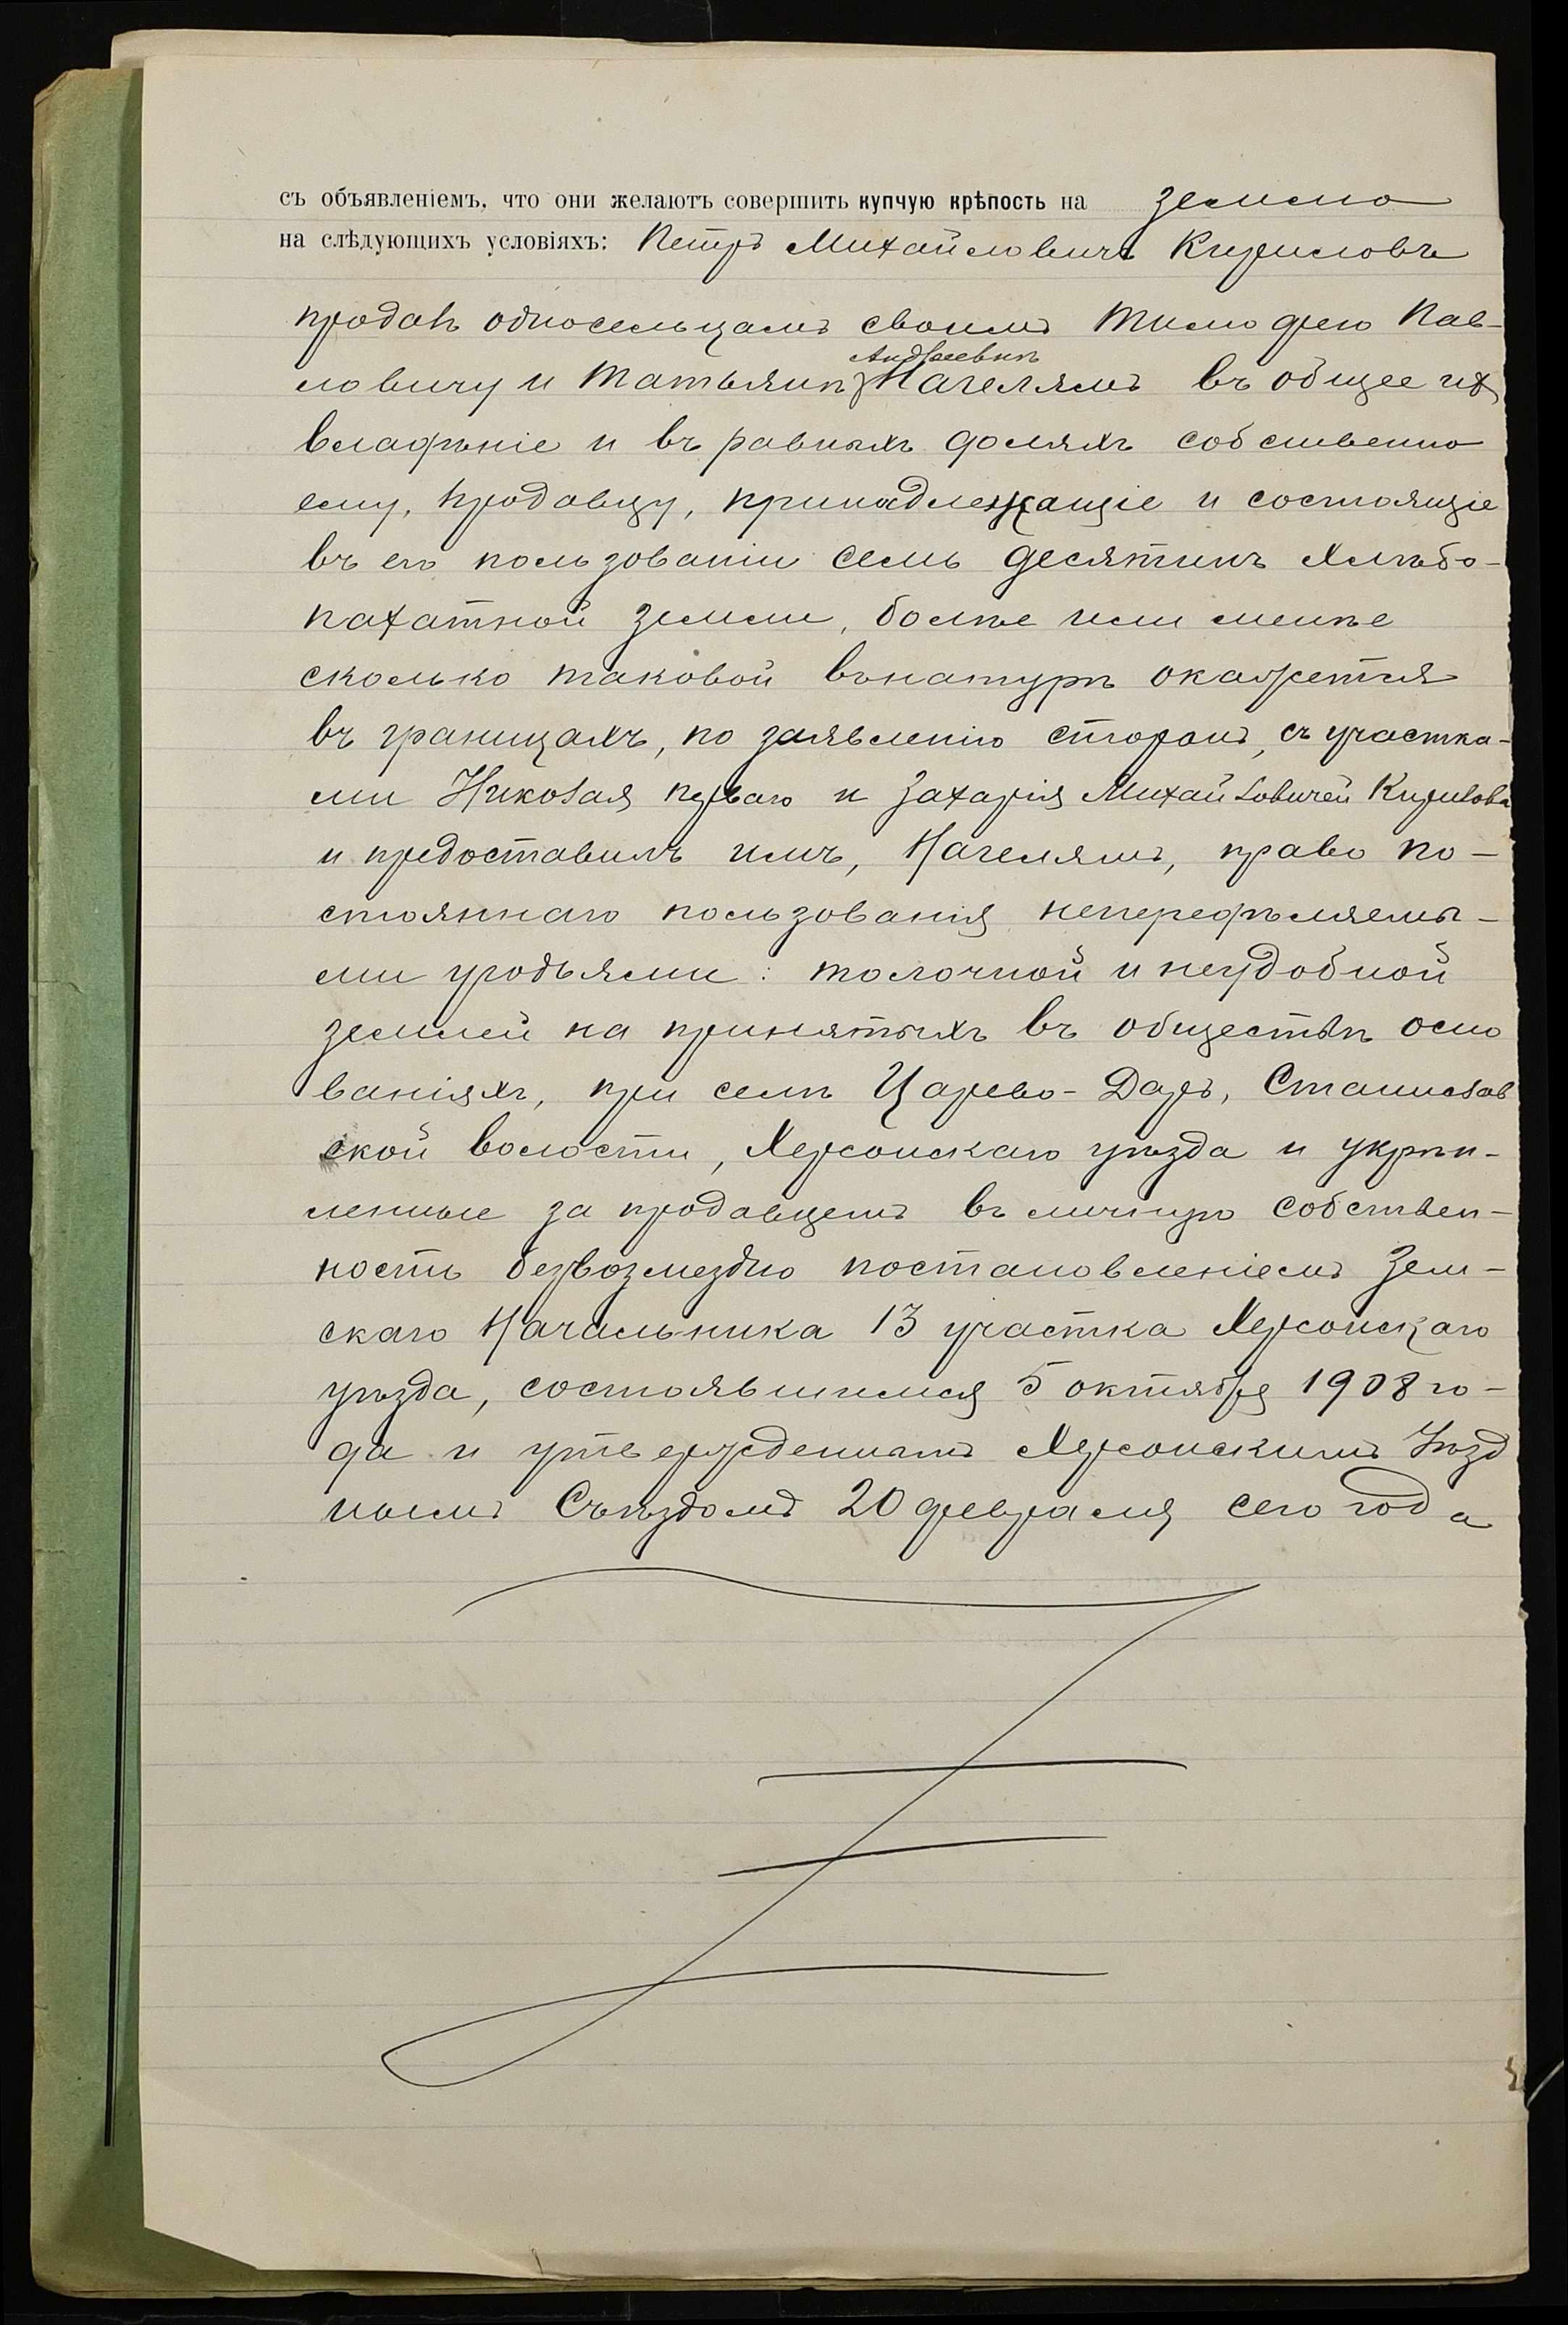 съ объявленіемъ, что они желаютъ совершить купчую крѣпость на землю
на слѣдующихъ условіяхъ: Петръ Михайловичъ Кириловъ
продалъ односельцамъ своимъ Тимофею Пав-
Андреевнѣ
ловичу и Татьянѣ Нагелямъ въ общее ихъ
владѣніе и въ равныхъ доляхъ собственно
ему, продавцу, принадлежащіе и состоящіе
въ его пользованіи семь десятинъ хлѣбо-
пахатной земли, болѣе или менѣе
сколько таковой въ натурѣ окажется
въ границахъ, по заявленію сторонъ, съ участка-
ми Николая перваго и Захарія Михайловичей Кирилова
и предоставилъ имъ, Нагелямъ, право по-
стояннаго пользованія непередѣляемы-
ми угодьями: толочной и неудобной
землей на принятыхъ въ обществѣ осно
ваніяхъ, при селѣ Царево-Даръ, Станислав
ской волости, Херсонскаго уѣзда и укрѣп-
ленные за продавцемъ въ личную собствен-
ность безвозмездно постановленіемъ Зем-
скаго Начальника 13 участка Херсонскаго
уѣзда, состоявшимся 5 октября 1908 го-
да и утвержденнымъ Херсонскимъ Уѣзд
нымъ Съѣздомъ 20 февраля сего года